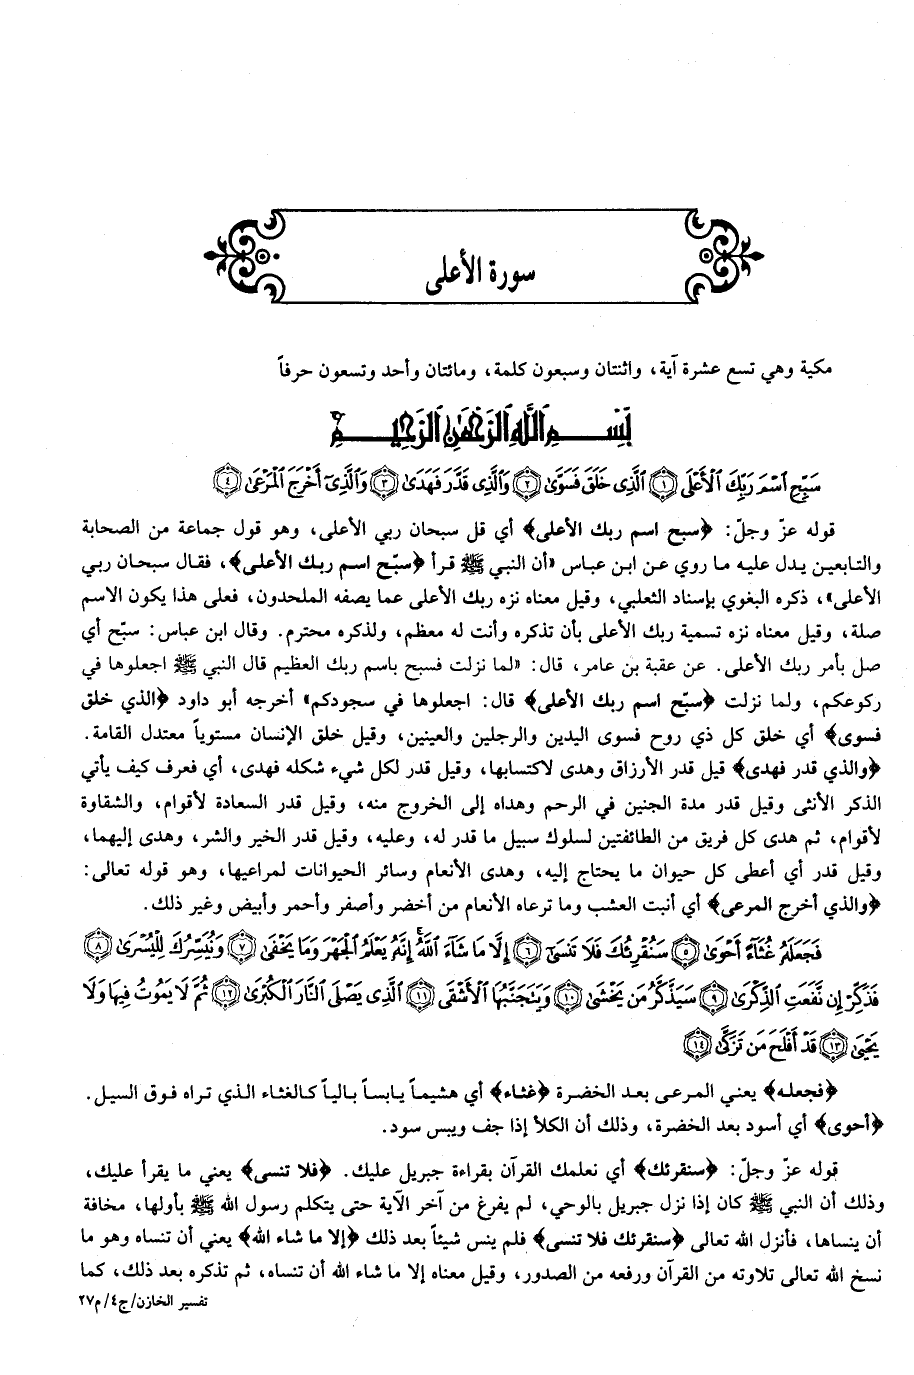 سورة الأعلى
مكية وهي تسع عشرة آية، واثنتان وسبعون كلمة، ومائتان وأحد وتسعون حرفاً
بِسْمِ اللَّهِ الرَّحْمَٰنِ الرَّحِيمِ
سَبِّحِ اسْمَ رَبِّكَ الْأَعْلَى ﴿١﴾ الَّذِي خَلَقَ فَسَوَّىٰ ﴿٢﴾ وَالَّذِي قَدَّرَ فَهَدَىٰ ﴿٣﴾ وَالَّذِي أَخْرَجَ الْمَرْعَىٰ ﴿٤﴾
قوله عزّ وجلّ: ﴿سبح اسم ربك الأعلى﴾ أي قل سبحان ربي الأعلى، وهو قول جماعة من الصحابة
والتابعين يدل عليه ما روي عن ابن عباس «أن النبي ﷺ قرأ ﴿سبّح اسم ربك الأعلى﴾، فقال سبحان ربي
الأعلى»، ذكره البغوي بإسناد الثعلبي، وقيل معناه نزه ربك الأعلى عما يصفه الملحدون، فعلى هذا يكون الاسم
صلة، وقيل معناه نزه تسمية ربك الأعلى بأن تذكره وأنت له معظم، ولذكره محترم. وقال ابن عباس: سبّح أي
صل بأمر ربك الأعلى. عن عقبة بن عامر، قال: «لما نزلت فسبح باسم ربك العظيم قال النبي ﷺ اجعلوها في
ركوعكم، ولما نزلت ﴿سبّح اسم ربك الأعلى﴾ قال: اجعلوها في سجودكم» أخرجه أبو داود ﴿الذي خلق
فسوى﴾ أي خلق كل ذي روح فسوى اليدين والرجلين والعينين، وقيل خلق الإنسان مستوياً معتدل القامة.
﴿والذي قدر فهدى﴾ قيل قدر الأرزاق وهدى لاكتسابها، وقيل قدر لكل شيء شكله فهدى، أي فعرف كيف يأتي
الذكر الأنثى وقيل قدر مدة الجنين في الرحم وهداه إلى الخروج منه، وقيل قدر السعادة لأقوام، والشقاوة
لأقوام، ثم هدى كل فريق من الطائفتين لسلوك سبيل ما قدر له، وعليه، وقيل قدر الخير والشر، وهدى إليهما،
وقيل قدر أي أعطى كل حيوان ما يحتاج إليه، وهدى الأنعام وسائر الحيوانات لمراعيها، وهو قوله تعالى:
﴿والذي أخرج المرعى﴾ أي أنبت العشب وما ترعاه الأنعام من أخضر وأصفر وأحمر وأبيض وغير ذلك.
فَجَعَلَهُ غُثَاءً أَحْوَىٰ ﴿٥﴾ سَنُقْرِئُكَ فَلَا تَنسَىٰ ﴿٦﴾ إِلَّا مَا شَاءَ اللَّهُ ۚ إِنَّهُ يَعْلَمُ الْجَهْرَ وَمَا يَخْفَىٰ ﴿٧﴾ وَنُيَسِّرُكَ لِلْيُسْرَىٰ ﴿٨﴾
فَذَكِّرْ إِن نَّفَعَتِ الذِّكْرَىٰ ﴿٩﴾ سَيَذَّكَّرُ مَن يَخْشَىٰ ﴿١٠﴾ وَيَتَجَنَّبُهَا الْأَشْقَى ﴿١١﴾ الَّذِي يَصْلَى النَّارَ الْكُبْرَىٰ ﴿١٢﴾ ثُمَّ لَا يَمُوتُ فِيهَا وَلَا
يَحْيَىٰ ﴿١٣﴾ قَدْ أَفْلَحَ مَن تَزَكَّىٰ ﴿١٤﴾
﴿فجعله﴾ يعني المرعى بعد الخضرة ﴿غثاء﴾ أي هشيماً يابساً بالياً كالغثاء الذي تراه فوق السيل.
﴿أحوى﴾ أي أسود بعد الخضرة، وذلك أن الكلأ إذا جف ويبس سود.
قوله عزّ وجلّ: ﴿سنقرئك﴾ أي نعلمك القرآن بقراءة جبريل عليك. ﴿فلا تنسى﴾ يعني ما يقرأ عليك،
وذلك أن النبي ﷺ كان إذا نزل جبريل بالوحي، لم يفرغ من آخر الآية حتى يتكلم رسول الله ﷺ بأولها، مخافة
أن ينساها، فأنزل الله تعالى ﴿سنقرئك فلا تنسى﴾ فلم ينس شيئاً بعد ذلك ﴿إلا ما شاء الله﴾ يعني أن تنساه وهو ما
نسخ الله تعالى تلاوته من القرآن ورفعه من الصدور، وقيل معناه إلا ما شاء الله أن تنساه، ثم تذكره بعد ذلك، كما
تفسير الخازن/ج٤/م٢٧